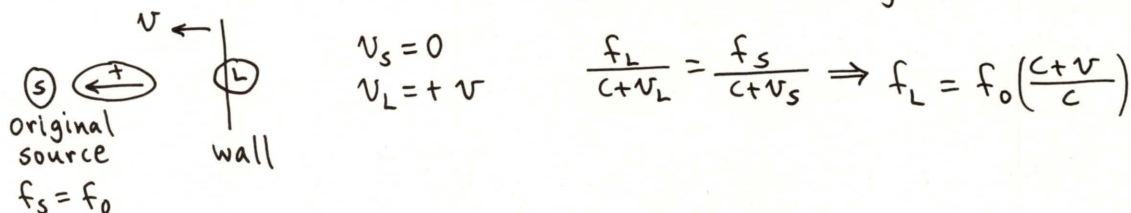 v
S
+
L
original
source
wall
f_S = f_0
v_S = 0
v_L = + v
f_L/(c+v_L) = f_S/(c+v_S) ⇒ f_L = f_0((c+v)/c)